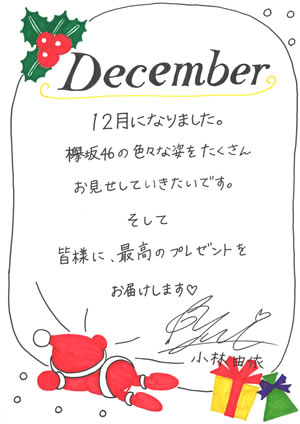 December
12月になりました。
欅坂46の色々な姿をたくさん
お見せしていきたいです。
そして
皆様に、最高のプレゼントを
お届けします♡
小林由依